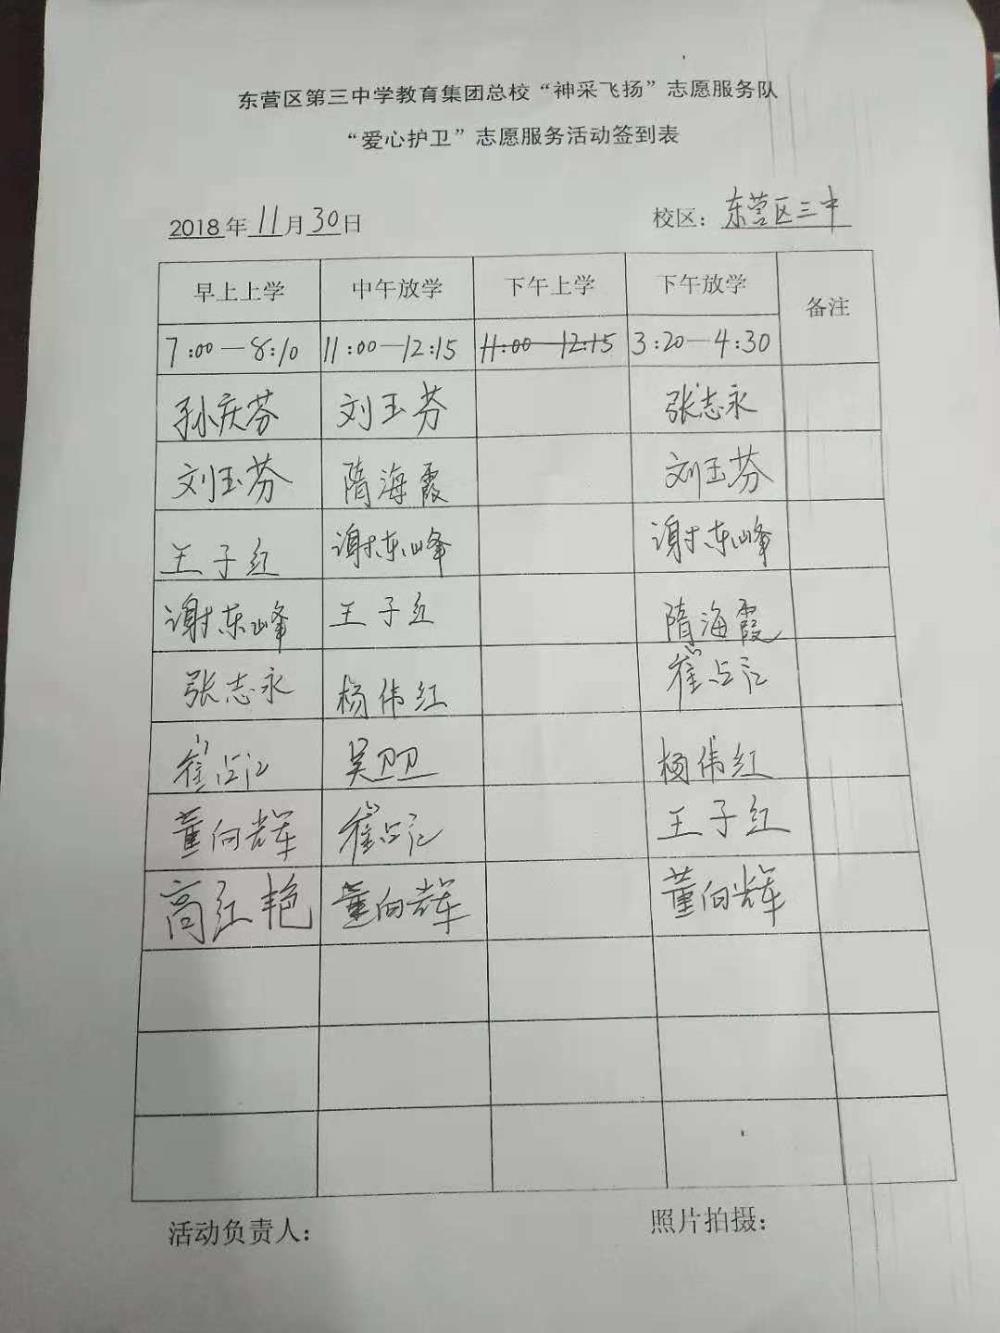 东营区第三中学教育集团总校“神采飞扬”志愿服务队
“爱心护卫”志愿服务活动签到表
2018年11月30日 校区：东营区三中
早上上学 中午放学 下午上学 下午放学 备注
7:00—8:10 11:00—12:15 11:00—12:15 3:20—4:30
孙庆芬 刘玉芬 张志永
刘玉芬 隋海霞 刘玉芬
王子红 谢东峰 谢东峰
谢东峰 王子红 隋海霞
张志永 杨伟红 崔占江
崔占江 吴卫卫 杨伟红
董向辉 崔占江 王子红
高红艳 董向辉 董向辉
活动负责人： 照片拍摄：